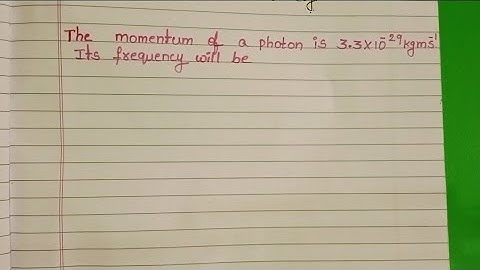 The momentum of a photon is 3.3×10⁻²⁹ kgms⁻¹
Its frequency will be